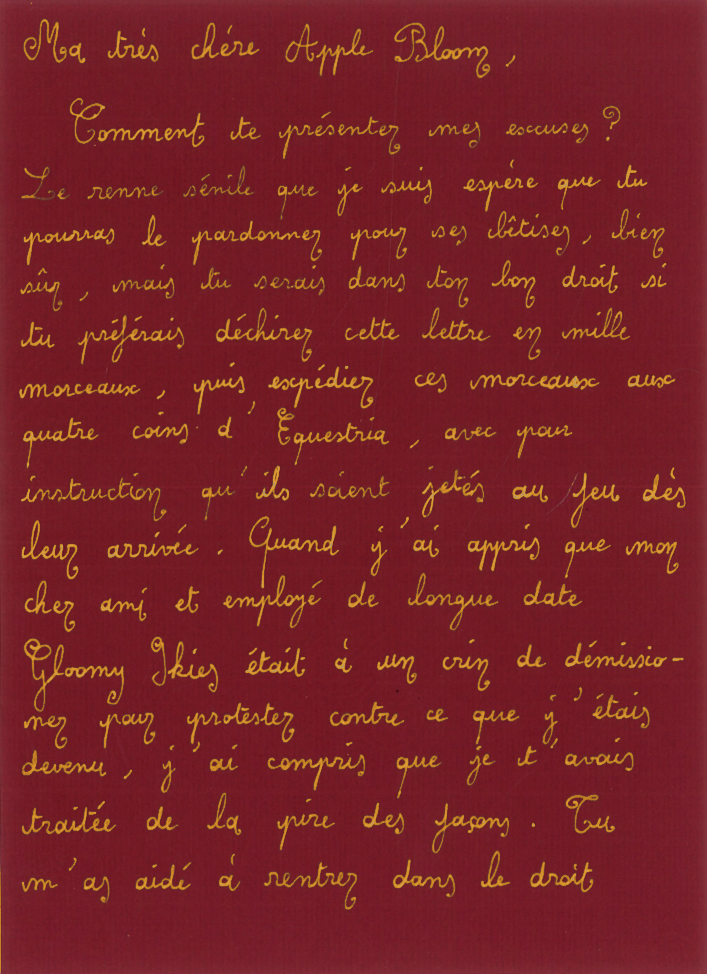 Ma très chére Apple Bloom,
Comment te présenter mes excuses ?
Le renne sénile que je suis espére que tu
pourras le pardonner pour ses bêtises, bien
sûr, mais tu serais dans ton bon droit si
tu préférais déchirer cette lettre en mille
morceaux, puis expédier ces morceaux aux
quatre coins d'Equestria, avec pour
instruction qu'ils soient jetés au feu dès
leur arrivée. Quand j'ai appris que mon
cher ami et employé de longue date
Gloomy Skies était à un crin de démissio-
ner pour protester contre ce que j'étais
devenu, j'ai compris que je t'avais
traitée de la pire des façons. Tu
m'as aidé à rentrer dans le droit